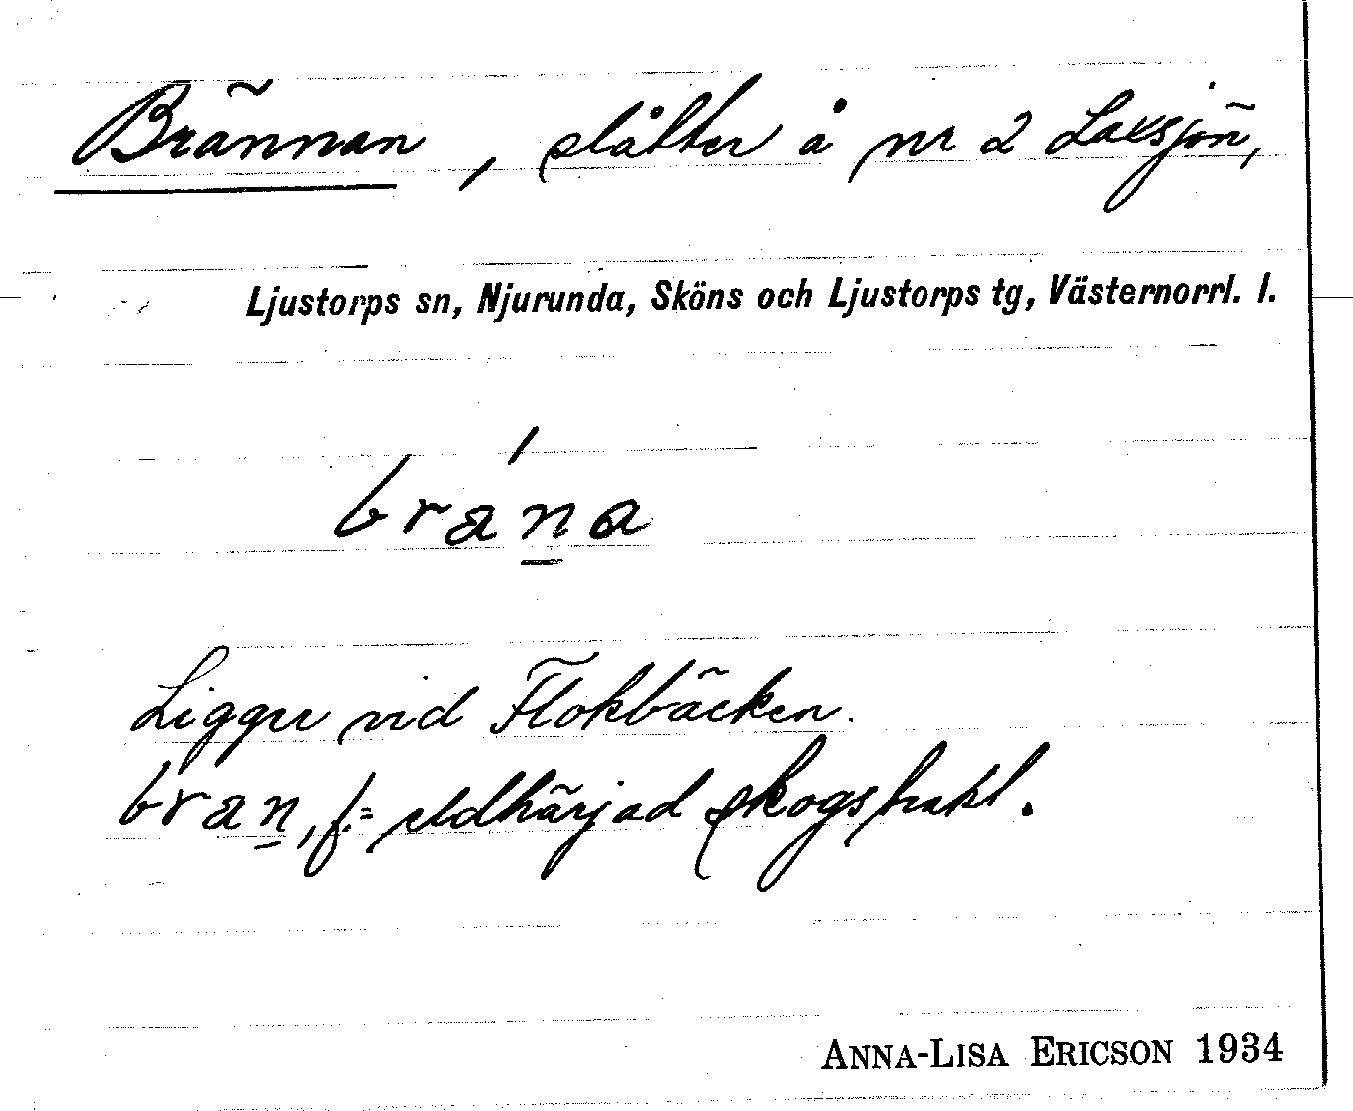 Brännan, slåtter å nr 2 Laxsjön,
Ljustorps sn, Njurunda, Sköns och Ljustorps tg, Västernorrl. l.
brana
Ligger vid Flokbäcken.
bran, f. = eldhärjad skogstrakt.
ANNA-LISA ERICSON 1934